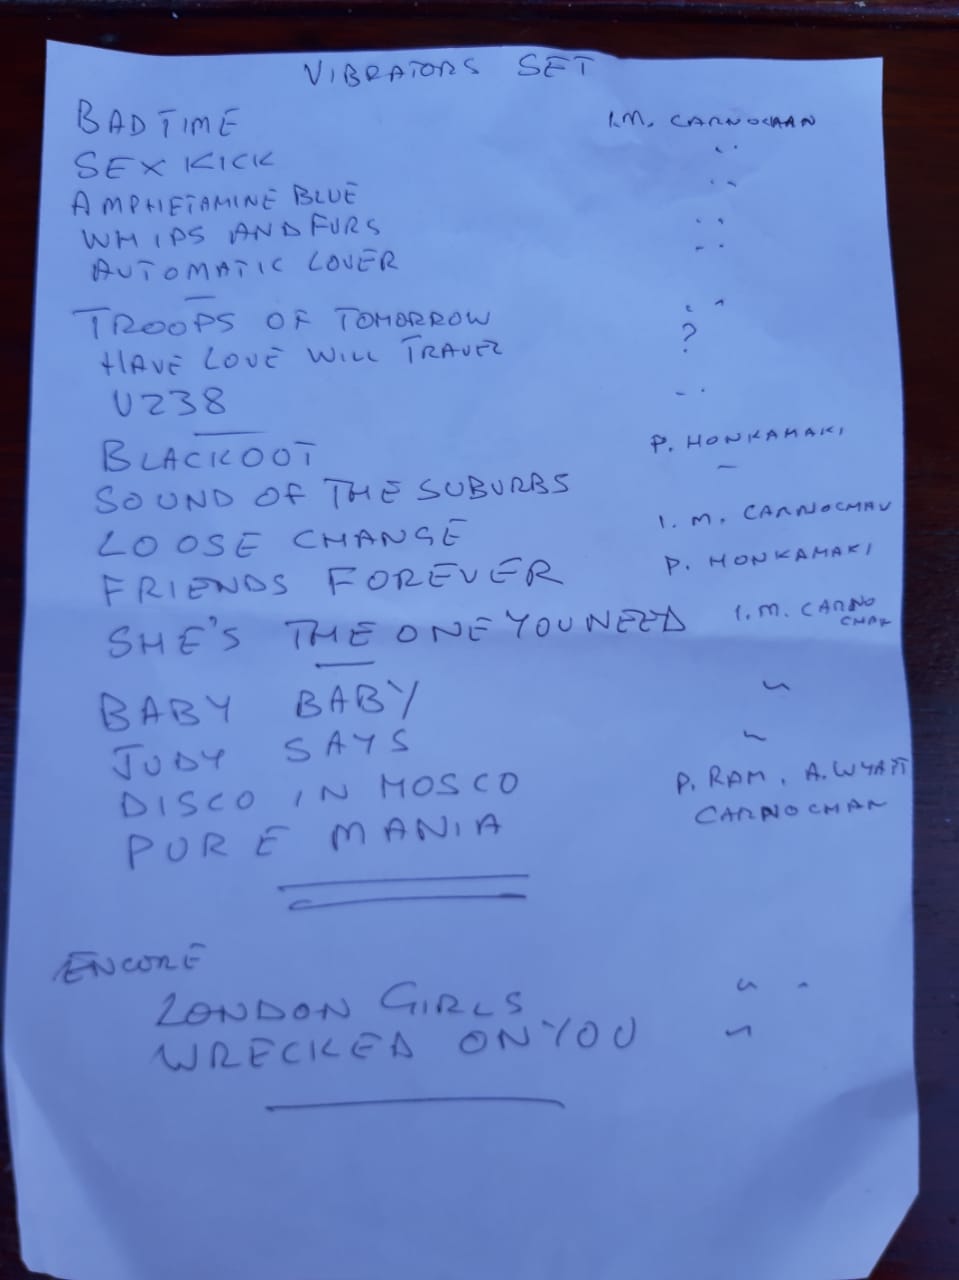 VIBRATORS SET
BAD TIME I.M. CARNOCHAN
SEX KICK "
AMPHETAMINE BLUE "
WHIPS AND FURS "
AUTOMATIC LOVER "
TROOPS OF TOMORROW "
HAVE LOVE WILL TRAVEL ?
U238 "
BLACKOUT P. HONKAMAKI
SOUND OF THE SUBURBS -
LOOSE CHANGE I. M. CARNOCHAN
FRIENDS FOREVER P. HONKAMAKI
SHE'S THE ONE YOU NEED I.M. CARNO
CHAN
BABY BABY "
JUDY SAYS "
DISCO IN MOSCO P. RAM. A. WYATT
PURE MANIA CARNOCHAN
ENCORE
LONDON GIRLS "
WRECKED ON YOU "